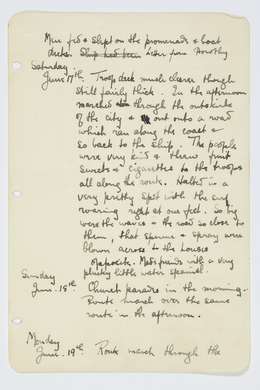 Men fed & slept on the promenade & boat
decks. Ship had been Letter from Dorothy
Saturday
June 17th Troop deck much clearer though
still fairly thick. In the afternoon
marched through the outskirts
of the city & out onto a road
which ran along the coast &
so back to the ship. The people
were very kind & threw fruit
sweets & cigarettes to the troops
all along the route. Halted in a
very pretty spot with the surf
roaring right at our feet. So big
were the waves & the road so close to
them, that spume & spray were
blown across to the houses
Made friends with a very
plucky little water spaniel.
Sunday
June 18th Church parade in the morning.
Route march over the same
route in the afternoon.
Monday
June 19th Route march through the